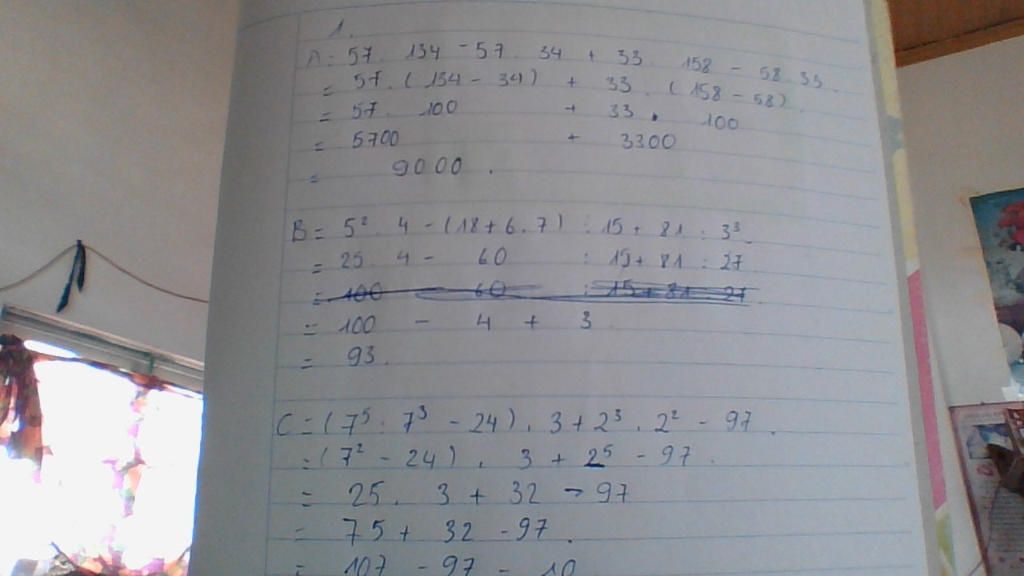 1.
A = 57. 134 - 57. 34 + 33. 158 - 58.33
= 57. (134 - 34) + 33. (158 - 58)
= 57. 100 + 33. 100
= 5700 + 3300
= 9000.
B = 5². 4 - (18 + 6.7) : 15 + 81 : 3³
= 25. 4 - 60 : 15 + 81 : 27
= 100 60 : 15 + 81 : 27
= 100 - 4 + 3
= 93.
C = (7⁵ : 7³ - 24). 3 + 2³. 2² - 97.
= (7² - 24). 3 + 2⁵ - 97.
= 25. 3 + 32 - 97
= 75 + 32 - 97.
= 107 - 97 = 10